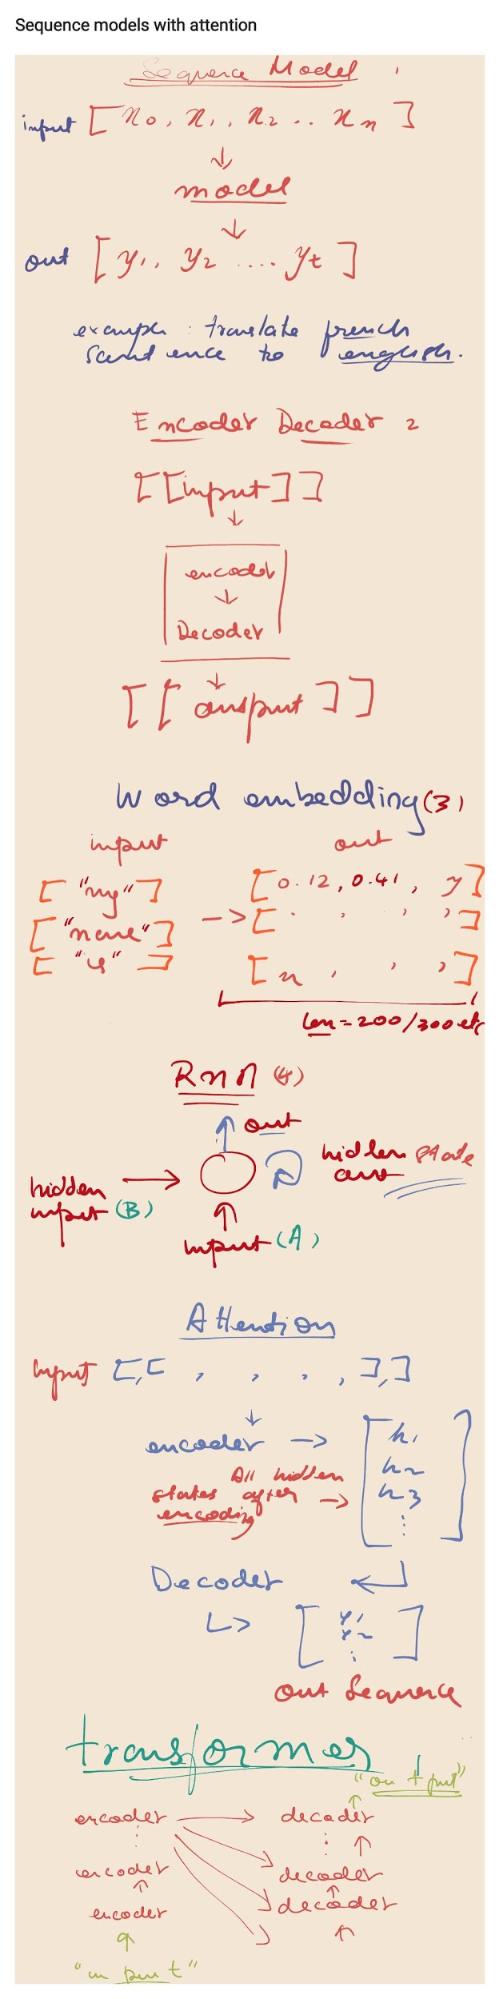 Sequence models with attention
Sequence Model
input [ x0, x1, x2 .. xn ]
↓
model
↓
out [ y1, y2 .... yt ]
example : translate french
sentence to english.
Encoder Decoder 2
[[input]]
↓
encoder
↓
Decoder
↓
[[ output ]]
Word embedding (3)
input out
["my"] [0.12, 0.41, y]
["name"] -> [ . , , , ]
["is"] [ x , , , ]
len = 200/300 etc
RNN (4)
out
hidden state
out
hidden
input (B)
input (A)
Attention
Input [,[ , , , , ],]
↓
encoder → h1
h2
All hidden
states after → h3
encoding
⋮
Decoder ↵
↳ [ y1
y2
⋮ ]
out Sequence
transformer
"output"
encoder → decoder
⋮ ⋮ ↑
encoder decoder
↑ ↑
encoder decoder
↑ ↑
"input"